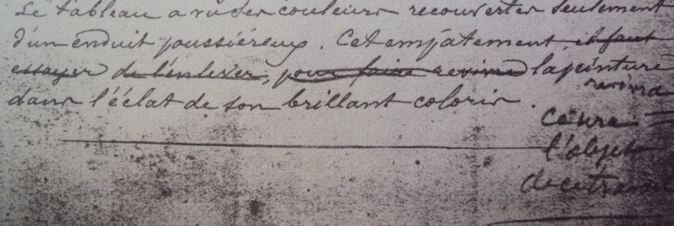 Le tableau a vu ses couleurs recouvertes seulement
d'un enduit poussiéreux. Cet empâtement, il faut
essayer de l'enlever, pour faire la peinture
dans l'éclat de son brillant coloris.
revivra
Ce sera
l'objet
de ce travail